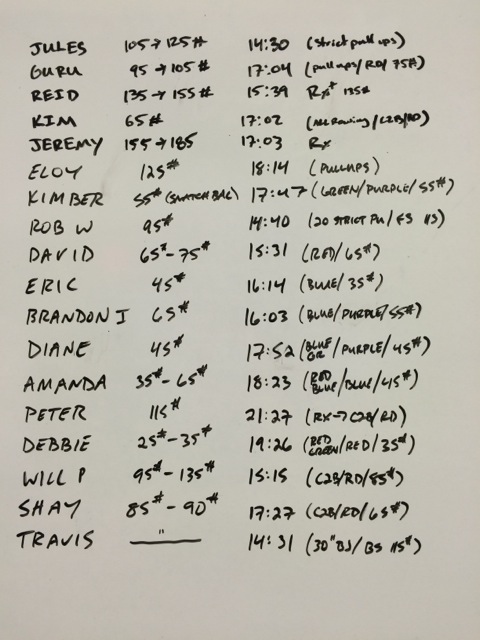 JULES 105→125# 14:30 (strict pull ups)
GURU 95→105# 17:04 (pullups/RD/75#)
REID 135→155# 15:39 Rx+ 135#
KIM 65# 17:02 (/C2B/RD)
JEREMY 155→185 17:03 Rx
ELOY 125# 18:14 (PULLUPS)
KIMBER 55# (SNATCH BAL) 17:47 (GREEN/PURPLE/55#)
ROB W 95# 14:40 (20 STRICT PU/FS 115)
DAVID 65#-75# 15:31 (RED/65#)
ERIC 45# 16:14 (BLUE/35#)
BRANDON I 65# 16:03 (BLUE/PURPLE/55#)
DIANE 45# 17:52 (BLUE GR/PURPLE/45#)
AMANDA 35#-65# 18:23 (RED BLUE/BLUE/45#)
PETER 115# 21:27 (RX→C2B/RD)
DEBBIE 25#-35# 19:26 (RED GREEN/RED/35#)
WILL P 95#-135# 15:15 (C2B/RD/85#)
SHAY 85#-90# 17:27 (C2B/RD/65#)
TRAVIS " 14:31 (30" BJ/BS 115#)